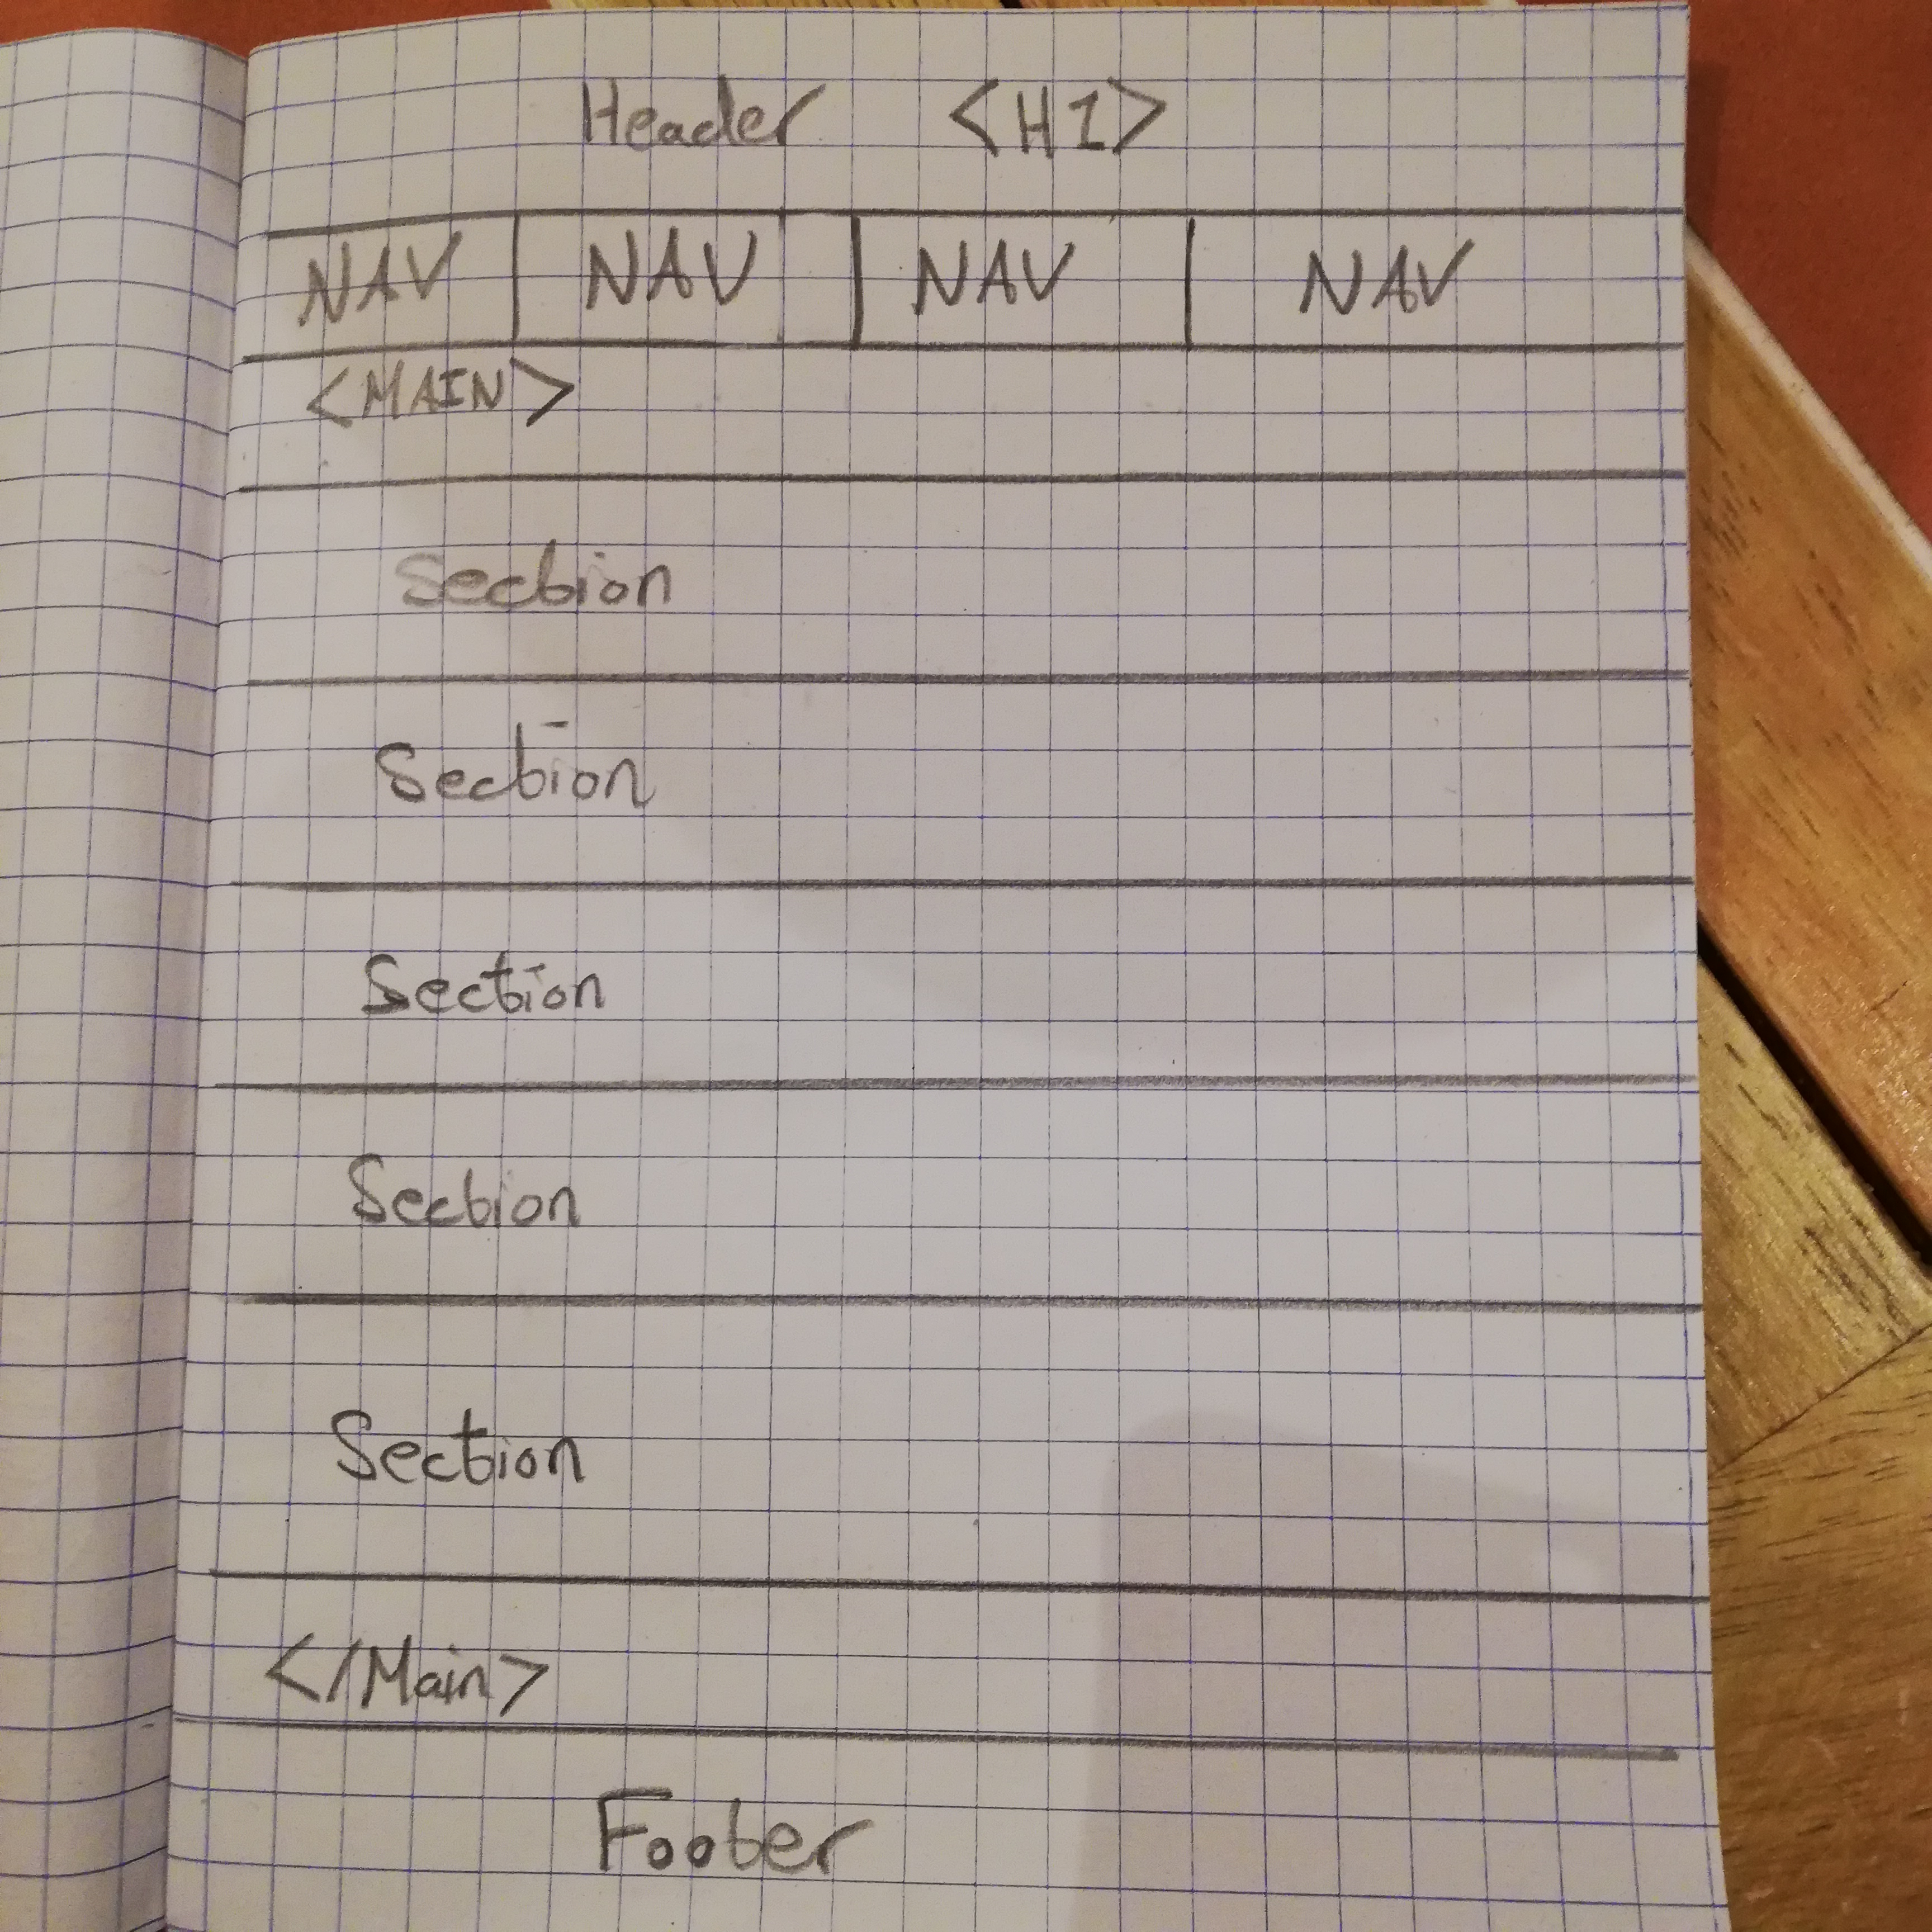 Header <H1>
NAV NAV NAV NAV
<MAIN>
Section
Section
Section
Section
Section
</Main>
Footer